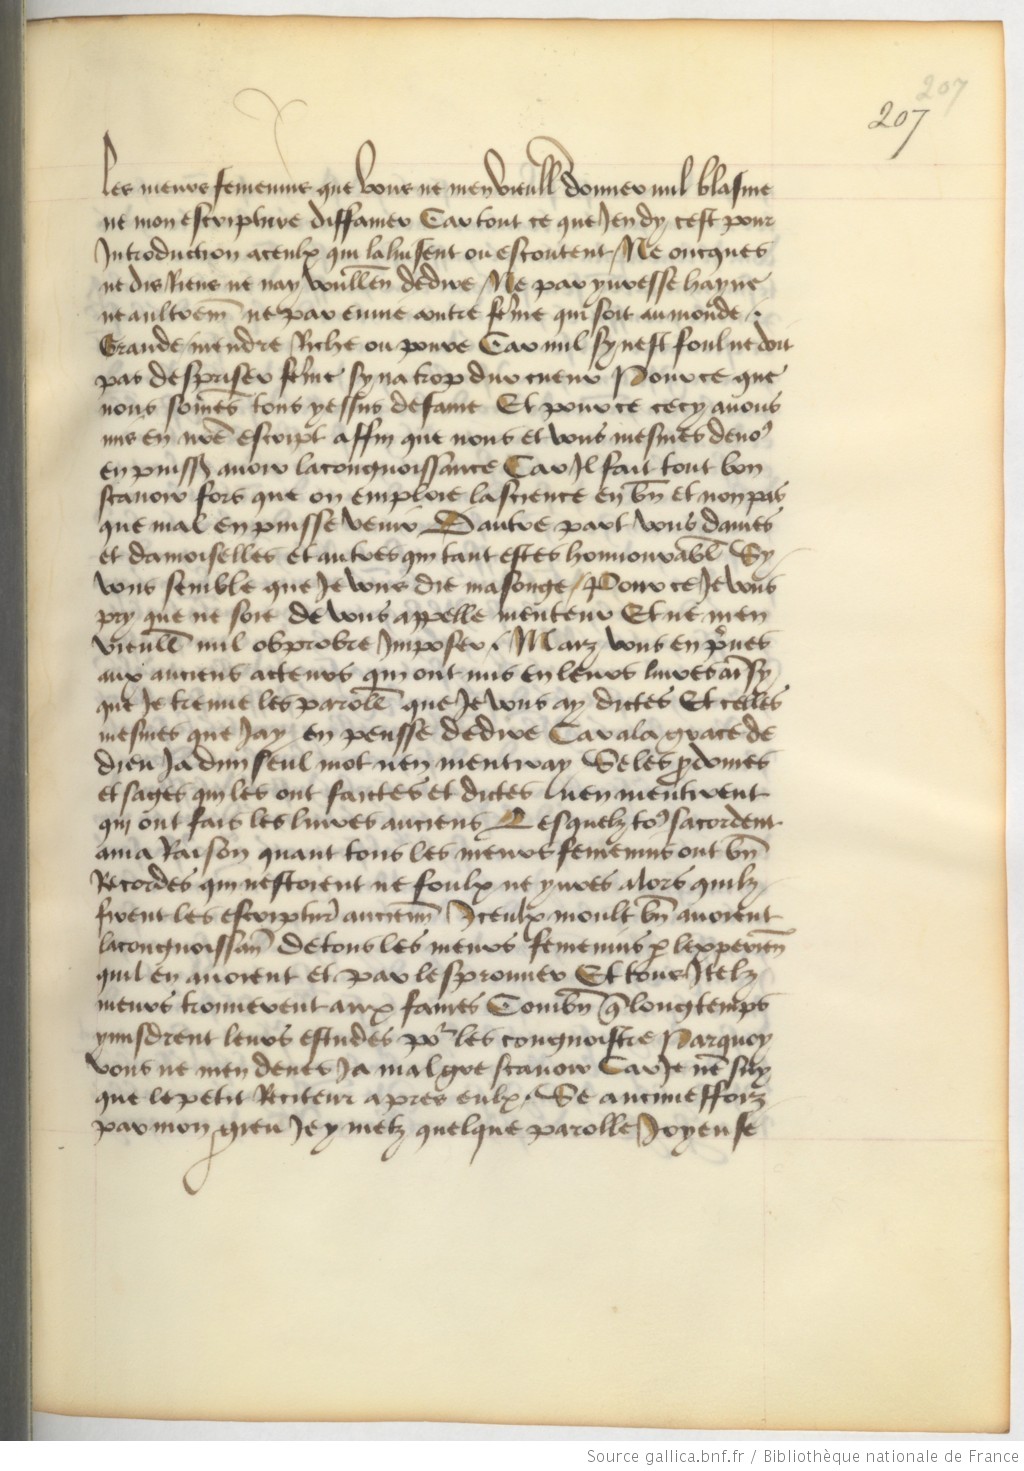 207
207
Les meurs femenins que vous ne men vieull donner nul blasme
ne mon escripture diffamer Car tout ce que Jen dy cest pour
Introduction a ceulx qui la luisent ou escoutent / Ne oncques
ne dis Riens ne nay voullen de dire / Ne par yvresse hayne
ne aultrem ne par envie contre feme qui soit au monde .
Grande mendre Riche ou povre Car nul sy nest foul ne doit
pas despriser feme sy na trop dur cueur Pour ce que
nous somes tous yessus de fame Et pour ce cecy avons
mis en nre escript affin que nous et vous mesmes de no9
en puiss avoir la congnoissance Car Il fait tout bon
scavoir fors que on emploie la science en bn et non pas
que mal en puisse venir Dautre part vous dames
et damoiselles et autres qui tant estes honnourabl Sy
vous semble que Je vous die masonge / Pour ce Je vous
pry que ne soie de vous appelle menteur Et ne men
vieull nul obprobre Imposer . Maiz vous en prenes
aux anciens acteurs qui ont mis en leurs livres ainsy
que Je treuve les paroll que Je vous ay dictes Et celles
mesmes que Jay en pensse de dire Car a la grace de
dieu Ja dun seul mot nen mentiray Se les preudomes
et sages qui les ont faictes et dictes nen mentirent
qui ont fais les livres anciens Lesquelz to9 sacordent
a ma Raison quant tous les meurs femenins ont bn
Recordes qui nestoient ne foulx ne yvres alors quilz
firent les escriptur anciem Iceulx moult bn avoient
la congnoissan de tous les meurs femenins p lexperien
quil en avoient et par lesprouver Et tous Itelz
meurs trouverent aux fames Combn q longtemps
y misdrent leurs estudes por les congnoistre Parquoy
vous ne men deves Ja mal gre scavoir Car Je ne suy
que le petit Reciteur apres eulx . Se aucunesfoiz
par mon gieu Je y metz quelque parolle Joyeuse
Source gallica.bnf.fr / Bibliothèque nationale de France